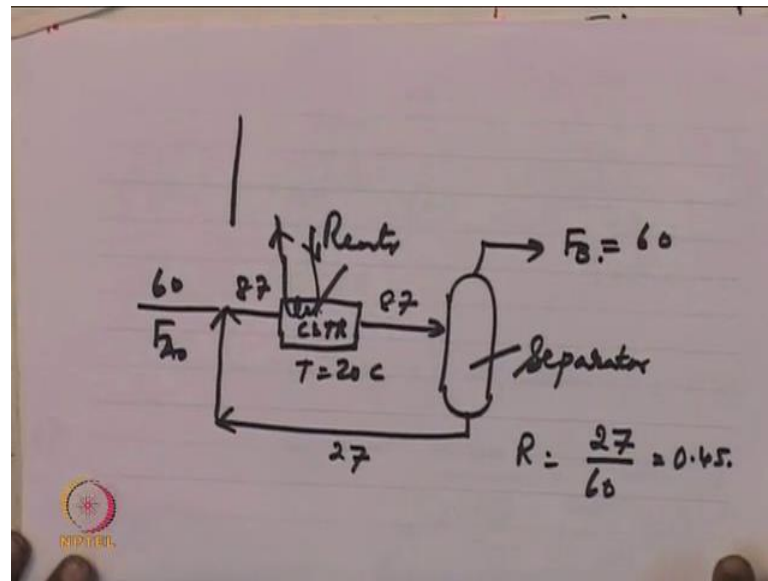 60
87
F₂₀
Reactor
CSTR
T = 20 C
87
F_B = 60
Separator
27
R = 27/60 = 0.45.
NPTEL